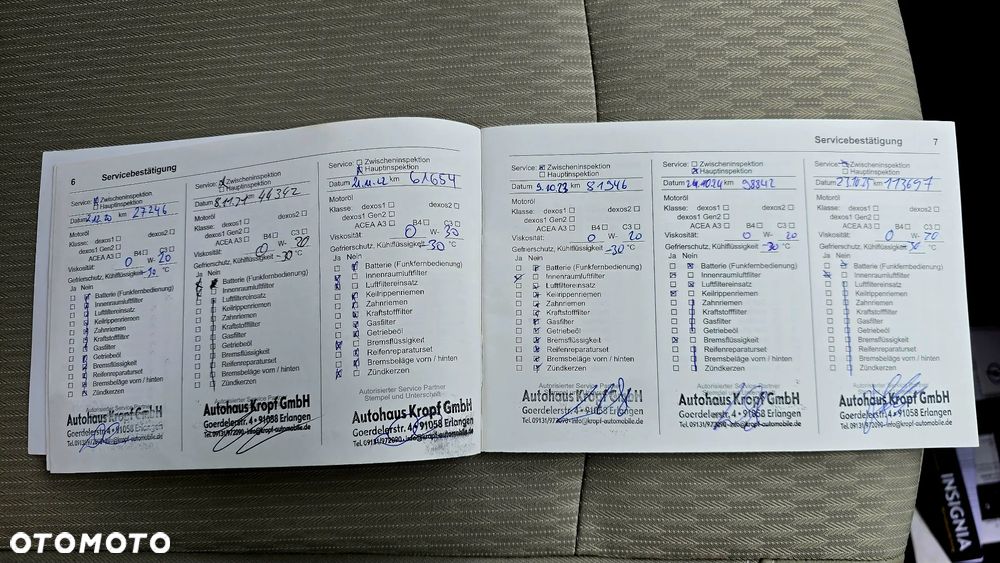 6 Servicebestätigung
Service: Zwischeninspektion
Hauptinspektion
Datum 2.12.20 km 27246
Motoröl
Klasse: dexos1 dexos2
dexos1 Gen2
ACEA A3 B4 C3
Viskosität: 0 W- 20
Gefrierschutz, Kühlflüssigkeit -30 °C
Ja Nein
Batterie (Funkfernbedienung)
Innenraumluftfilter
Luftfiltereinsatz
Keilrippenriemen
Zahnriemen
Kraftstofffilter
Gasfilter
Getriebeöl
Bremsflüssigkeit
Reifenreparaturset
Bremsbeläge vorn / hinten
Zündkerzen
Autorisierter Service
Autohaus Kropf GmbH
Goerdelerstr. 4 • 91058 Erlangen
Tel. 09131/972090 - info@kropf-automobile.de
Service: Zwischeninspektion
Hauptinspektion
Datum 8.11.21 km 44342
Motoröl
Klasse: dexos1 dexos2
dexos1 Gen2
ACEA A3 B4 C3
Viskosität: 0 W- 20
Gefrierschutz, Kühlflüssigkeit -30 °C
Ja Nein
Batterie (Funkfernbedienung)
Innenraumluftfilter
Luftfiltereinsatz
Keilrippenriemen
Zahnriemen
Kraftstofffilter
Gasfilter
Getriebeöl
Bremsflüssigkeit
Reifenreparaturset
Bremsbeläge vorn / hinten
Zündkerzen
Autorisierter Service
Autohaus Kropf GmbH
Goerdelerstr. 4 • 91058 Erlangen
Tel. 09131/972090 - info@kropf-automobile.de
Service: Zwischeninspektion
Hauptinspektion
Datum 21.11.22 km 61654
Motoröl
Klasse: dexos1 dexos2
dexos1 Gen2
ACEA A3 B4 C3
Viskosität: 0 W- 30
Gefrierschutz, Kühlflüssigkeit -30 °C
Ja Nein
Batterie (Funkfernbedienung)
Innenraumluftfilter
Luftfiltereinsatz
Keilrippenriemen
Zahnriemen
Kraftstofffilter
Gasfilter
Getriebeöl
Bremsflüssigkeit
Reifenreparaturset
Bremsbeläge vorn / hinten
Zündkerzen
Autorisierter Service Partner
Stempel und Unterschrift
Autohaus Kropf GmbH
Goerdelerstr. 4 • 91058 Erlangen
Tel. 09131/972090 - info@kropf-automobile.de
Servicebestätigung 7
Service: Zwischeninspektion
Hauptinspektion
Datum 9.10.23 km 81946
Motoröl
Klasse: dexos1 dexos2
dexos1 Gen2
ACEA A3 B4 C3
Viskosität: 0 W- 20
Gefrierschutz, Kühlflüssigkeit -30 °C
Ja Nein
Batterie (Funkfernbedienung)
Innenraumluftfilter
Luftfiltereinsatz
Keilrippenriemen
Zahnriemen
Kraftstofffilter
Gasfilter
Getriebeöl
Bremsflüssigkeit
Reifenreparaturset
Bremsbeläge vorn / hinten
Zündkerzen
Autorisierter Service Partner
Autohaus Kropf GmbH
Goerdelerstr. 4 • 91058 Erlangen
Tel. 09131/972090 - info@kropf-automobile.de
Service: Zwischeninspektion
Hauptinspektion
Datum 24.10.24 km 98842
Motoröl
Klasse: dexos1 dexos2
dexos1 Gen2
ACEA A3 B4 C3
Viskosität: 0 W- 20
Gefrierschutz, Kühlflüssigkeit -30 °C
Ja Nein
Batterie (Funkfernbedienung)
Innenraumluftfilter
Luftfiltereinsatz
Keilrippenriemen
Zahnriemen
Kraftstofffilter
Gasfilter
Getriebeöl
Bremsflüssigkeit
Reifenreparaturset
Bremsbeläge vorn / hinten
Zündkerzen
Autorisierter Service Partner
Autohaus Kropf GmbH
Goerdelerstr. 4 • 91058 Erlangen
Tel. 09131/972090 - info@kropf-automobile.de
Service: Zwischeninspektion
Hauptinspektion
Datum 23.10.25 km 113697
Motoröl
Klasse: dexos1 dexos2
dexos1 Gen2
ACEA A3 B4 C3
Viskosität: 0 W- 20
Gefrierschutz, Kühlflüssigkeit °C
Ja Nein
Batterie (Funkfernbedienung)
Innenraumluftfilter
Luftfiltereinsatz
Keilrippenriemen
Zahnriemen
Kraftstofffilter
Gasfilter
Getriebeöl
Bremsflüssigkeit
Reifenreparaturset
Bremsbeläge vorn / hinten
Zündkerzen
Autorisierter Service Partner
Autohaus Kropf GmbH
Goerdelerstr. 4 • 91058 Erlangen
Tel. 09131/972090 - info@kropf-automobile.de
INSIGNIA
OTOMOTO